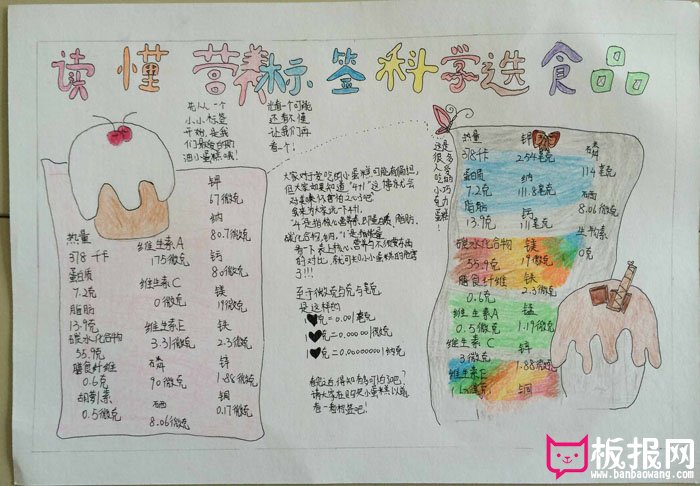 读懂营养标签科学选食品
先从一个
小小标签
开始，是我
们最爱的奶
油小蛋糕哦！
光看一个可能
还看不懂
让我们再
看一个！
钾
67微克
钠
80.7微克
钙
80微克
镁
19微克
铁
2.3微克
锌
1.88微克
铜
0.17微克
热量
378千卡
蛋白质
7.2克
脂肪
13.9克
碳水化合物
55.9克
膳食纤维
0.6克
胡萝素
0.5微克
维生素A
175微克
维生素C
0微克
维生素E
3.31微克
磷
90微克
硒
8.06微克
大家对于爱吃的小蛋糕可能有偏袒，
但大家如果知道"4+1"这
"4"是指核心营养素，即蛋白质、脂肪、
碳水化合物、钠，"1"是指能量
看一下表上核心营养与不健康东西
的对比，就可知小小蛋糕的危害
了!!!
至于微克与克与毫克
是这样的
1 =0.001毫克
1 =0.000001微克
1 =0.000000001纳克
请大家在购买小蛋糕以后
看一看标签吧！
这是
很多
人爱
吃的
小巧
克力
蛋糕！
热量
378卡
蛋白质
7.2克
脂肪
13.9克
碳水化合物
55.9克
膳食纤维
0.6克
维生素A
0.5微克
维生素C
3微克
维生素E
钾
254毫克
钠
111.8毫克
钙
111毫克
镁
19微克
铁
2.3微克
锰
1.19微克
锌
1.88微克
铜
磷
114毫克
硒
8.06微克
生物素
0克
板报网
www.banbaowang.com